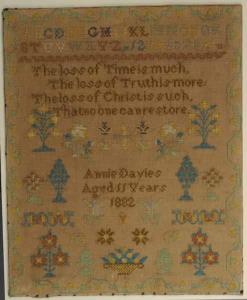 CD GH KL
STUVWXYZ 12
The loss of Time is much,
The loss of Truth is more:
The loss of Christ is such,
That no one can restore.
Annie Davies
Aged 11 Years
1882